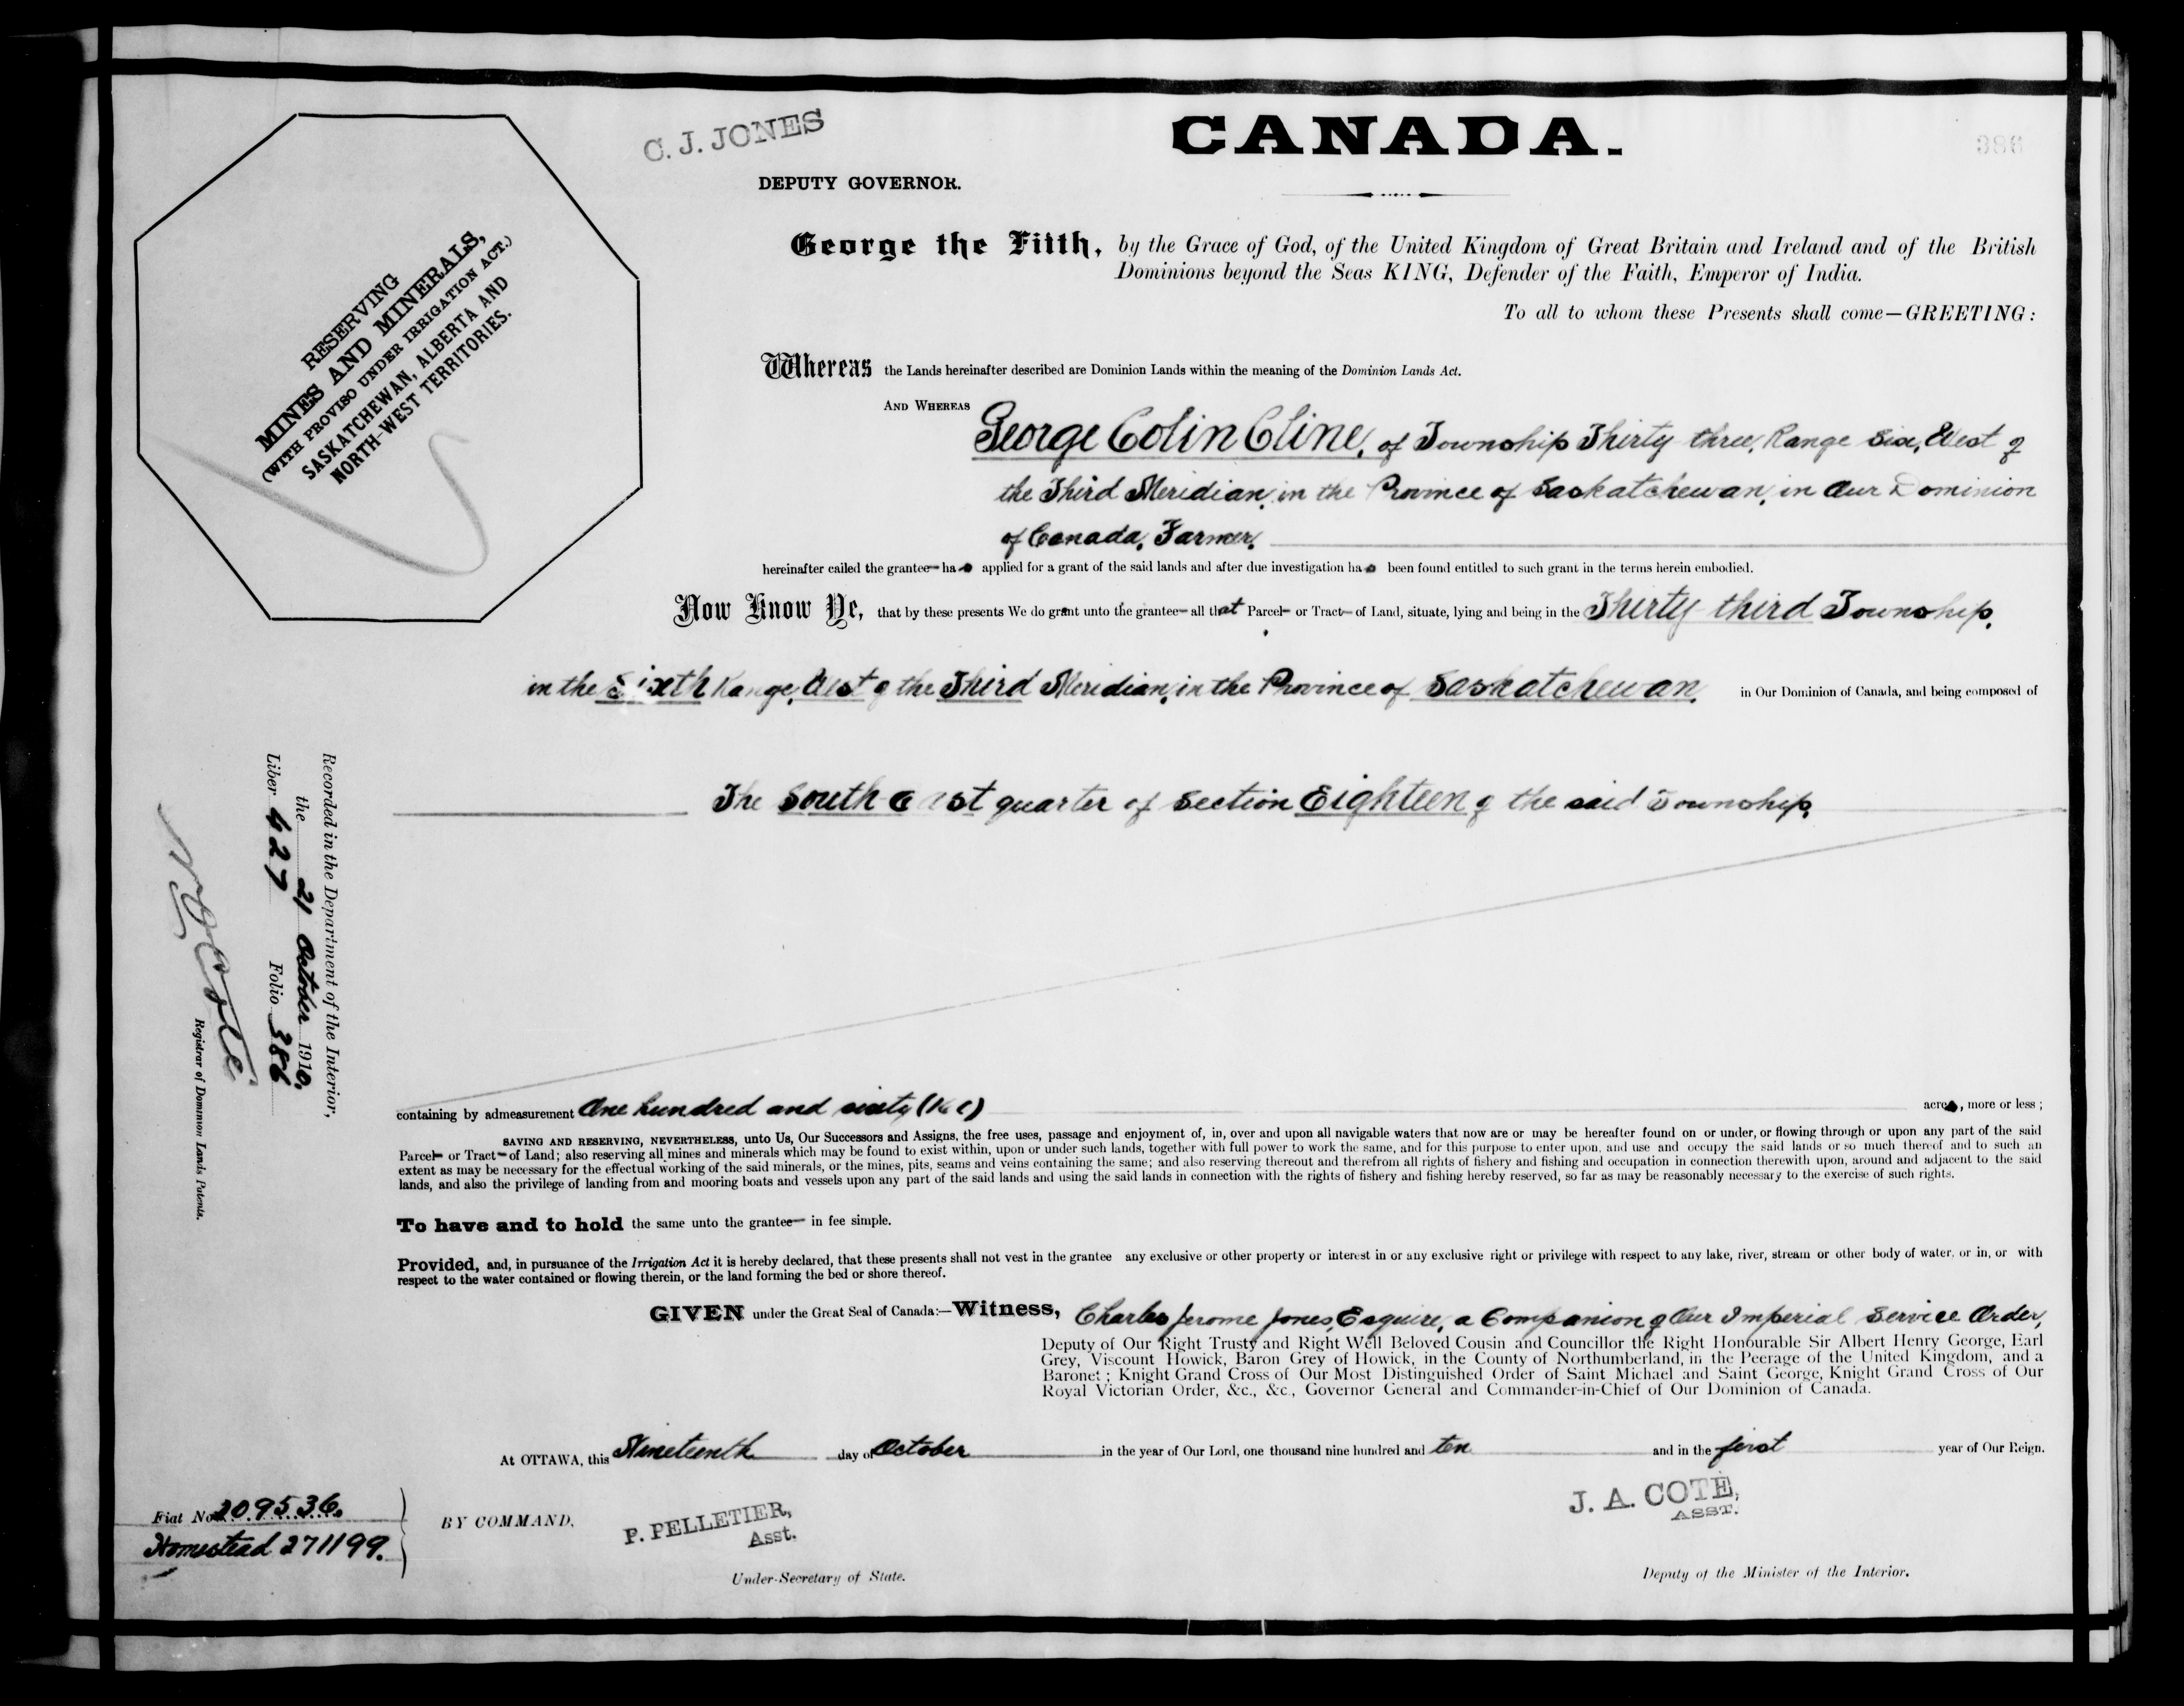 C. J. JONES
CANADA.
386
DEPUTY GOVERNOR.
RESERVING
MINES AND MINERALS,
(WITH PROVISO UNDER IRRIGATION ACT.)
SASKATCHEWAN, ALBERTA AND
NORTH-WEST TERRITORIES.
George the Fifth, by the Grace of God, of the United Kingdom of Great Britain and Ireland and of the British
Dominions beyond the Seas KING, Defender of the Faith, Emperor of India.
To all to whom these Presents shall come—GREETING:
Whereas the Lands hereinafter described are Dominion Lands within the meaning of the Dominion Lands Act.
AND WHEREAS George Colin Cline, of Township Thirty three, Range Six, West of
the Third Meridian, in the Province of Saskatchewan, in Our Dominion
of Canada, Farmer,
hereinafter called the grantee has applied for a grant of the said lands and after due investigation has been found entitled to such grant in the terms herein embodied.
Now Know Ye, that by these presents We do grant unto the grantee all that Parcel or Tract of Land, situate, lying and being in the Thirty third Township,
in the Sixth Range, West of the Third Meridian, in the Province of Saskatchewan, in Our Dominion of Canada, and being composed of
The South east quarter of Section Eighteen of the said Township,
Recorded in the Department of the Interior,
the 21 October 1910.
Liber 427 Folio 386
Registrar of Dominion Lands Patents.
containing by admeasurement One hundred and sixty (160) acres, more or less;
SAVING AND RESERVING, NEVERTHELESS, unto Us, Our Successors and Assigns, the free uses, passage and enjoyment of, in, over and upon all navigable waters that now are or may be hereafter found on or under, or flowing through or upon any part of the said
Parcel or Tract of Land; also reserving all mines and minerals which may be found to exist within, upon or under such lands, together with full power to work the same, and for this purpose to enter upon, and use and occupy the said lands or so much thereof and to such an
extent as may be necessary for the effectual working of the said minerals, or the mines, pits, seams and veins containing the same; and also reserving thereout and therefrom all rights of fishery and fishing and occupation in connection therewith upon, around and adjacent to the said
lands, and also the privilege of landing from and mooring boats and vessels upon any part of the said lands and using the said lands in connection with the rights of fishery and fishing hereby reserved, so far as may be reasonably necessary to the exercise of such rights.
To have and to hold the same unto the grantee in fee simple.
Provided, and, in pursuance of the Irrigation Act it is hereby declared, that these presents shall not vest in the grantee any exclusive or other property or interest in or any exclusive right or privilege with respect to any lake, river, stream or other body of water, or in, or with
respect to the water contained or flowing therein, or the land forming the bed or shore thereof.
GIVEN under the Great Seal of Canada:—Witness, Charles Jerome Jones, Esquire, a Companion of Our Imperial Service Order,
Deputy of Our Right Trusty and Right Well Beloved Cousin and Councillor the Right Honourable Sir Albert Henry George, Earl
Grey, Viscount Howick, Baron Grey of Howick, in the County of Northumberland, in the Peerage of the United Kingdom, and a
Baronet; Knight Grand Cross of Our Most Distinguished Order of Saint Michael and Saint George, Knight Grand Cross of Our
Royal Victorian Order, &c., &c., Governor General and Commander-in-Chief of Our Dominion of Canada.
At OTTAWA, this Nineteenth day of October in the year of Our Lord, one thousand nine hundred and ten and in the first year of Our Reign.
Fiat No. 209536.
Homestead 271199.
BY COMMAND,
P. PELLETIER,
Asst.
Under-Secretary of State.
J. A. COTE,
ASST.
Deputy of the Minister of the Interior.